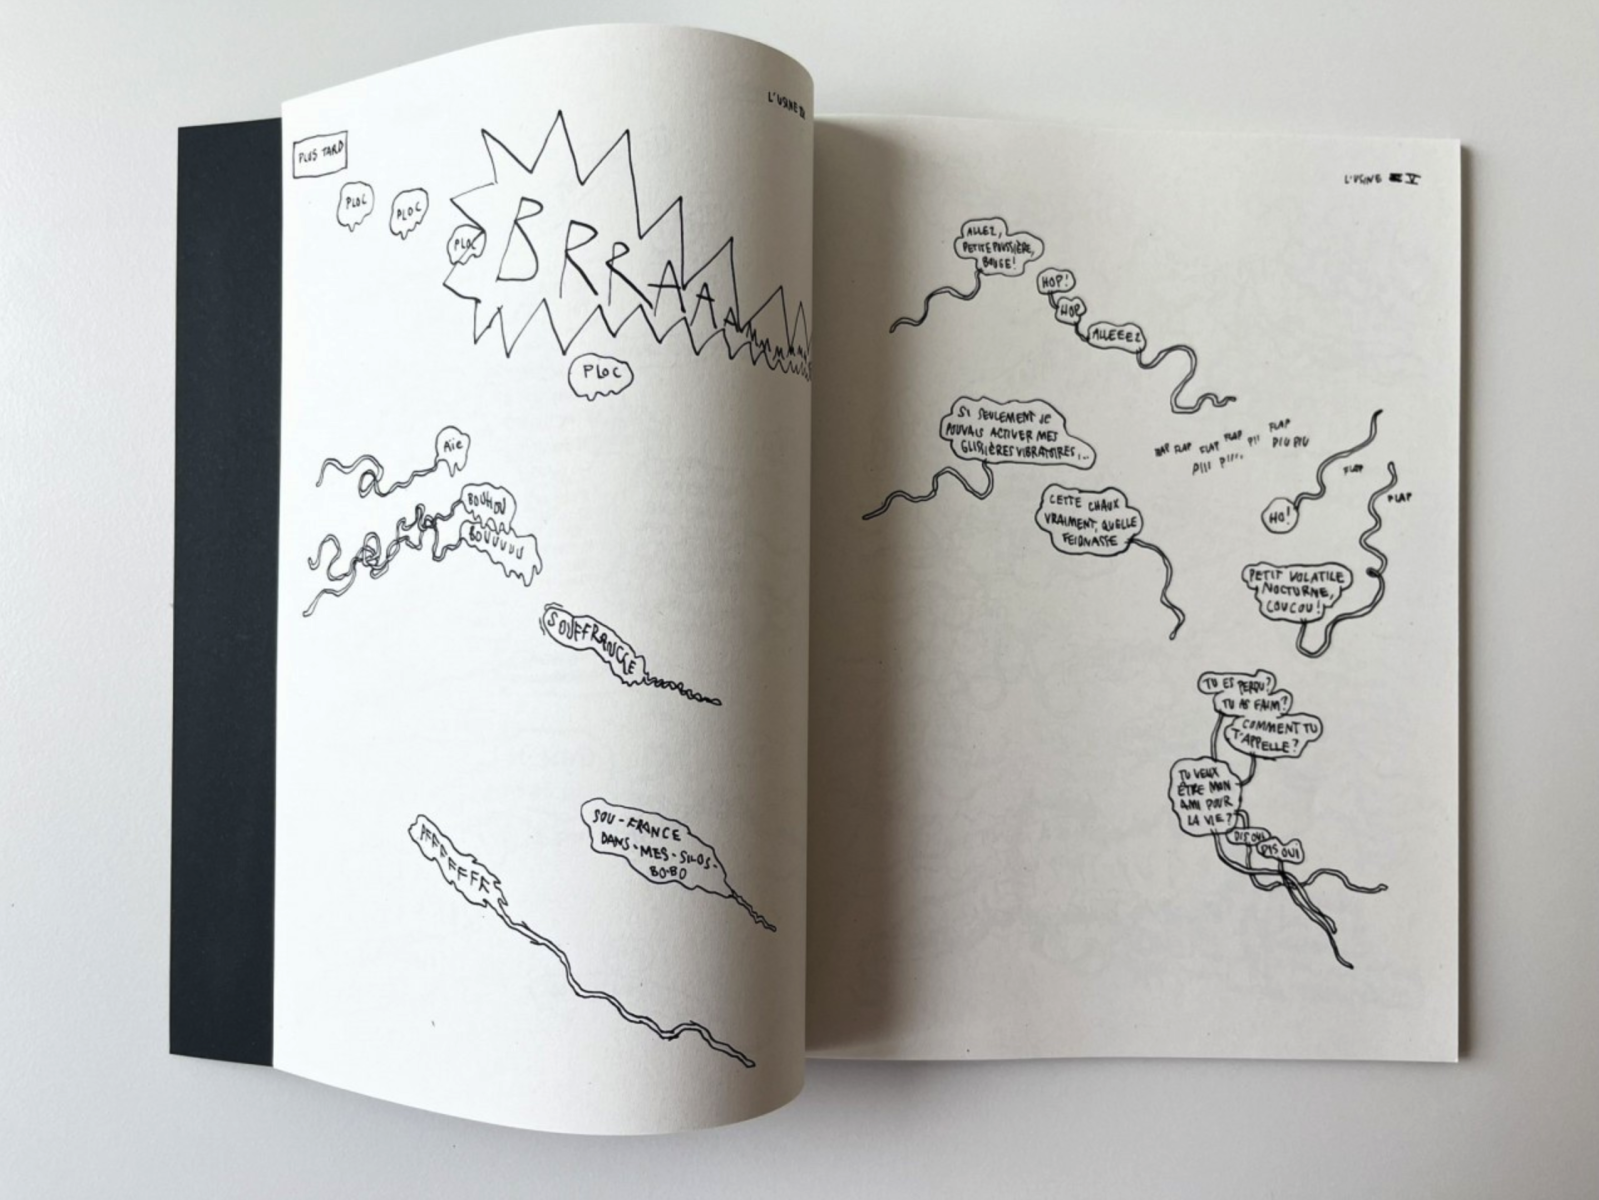 L'USINE
PLUS TARD
PLOC
PLOC
PLOC
BRRAAA
PLOC
AÏE
BOUHOU
BOUUUUU
SOUFFRANCE
SOU-FRANCE
DANS-MES-SILOS-
BO-BO
PFFFFFFF
L'USINE V
ALLEZ,
PETITE POUSSIÈRE,
BOUGE!
HOP!
HOP
ALLEEEZ
SI SEULEMENT JE
POUVAIS ACTIVER MES
GLISSIÈRES VIBRATOIRES...
FLAP FLAP FLAP FLAP
PIU PIU
PIII PIII...
CETTE CHAUX
VRAIMENT, QUELLE
FEIGNASSE
FLAP
FLAP
HO!
PETIT VOLATILE
NOCTURNE,
COUCOU!
TU ES PERDU?
TU AS FAIM?
COMMENT TU
T'APPELLE?
TU VEUX
ÊTRE MON
AMI POUR
LA VIE?
DIS OUI
DIS OUI